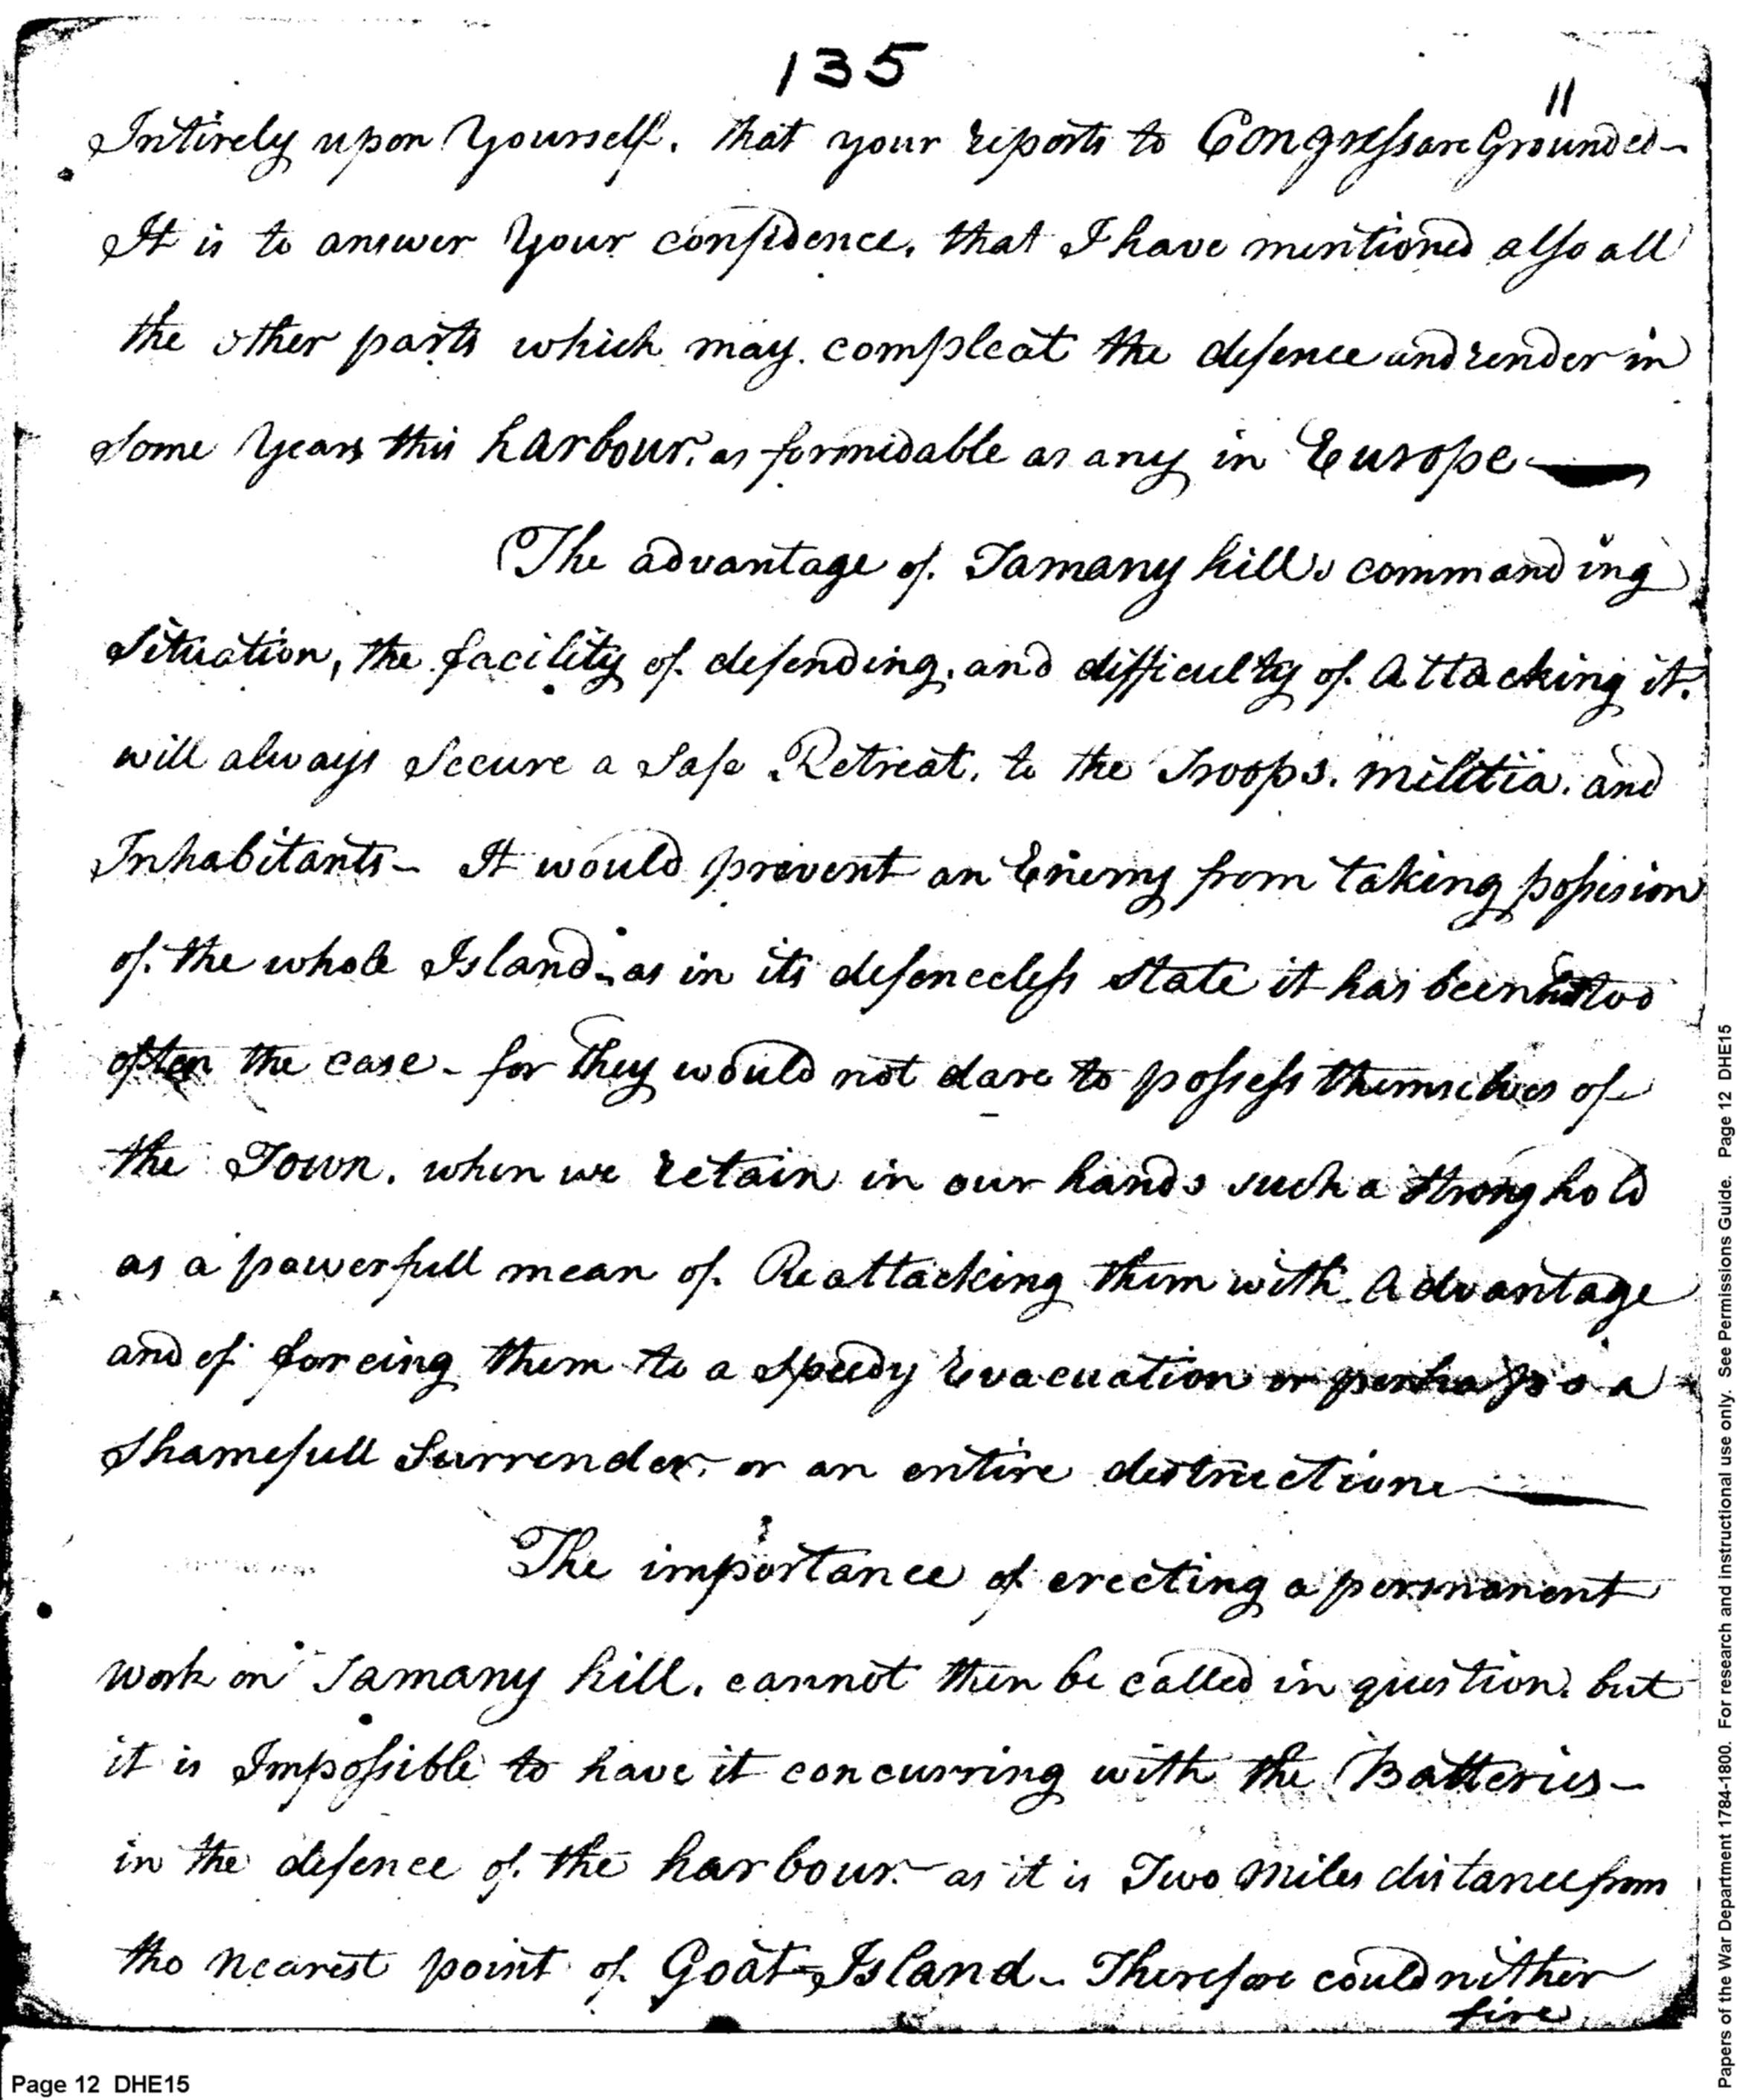 135
11
Intirely upon Yourself. that your reports to Congress are Grounded-
It is to answer Your confidence, that I have mentioned also all
the other parts which may compleat the defence and render in
some Years this harbour. as formidable as any in Europe—
The advantage of Tamany hill's commanding
Situation, the facility of defending, and difficulty of Attacking it.
will always Secure a Safe Retreat. to the Troops. militia. and
Inhabitants- It would prevent an Enemy from taking possesion
of the whole Island- as in its defenceless State it has been too
often the case- for They would not dare to possess themselves of
the Town. when we retain in our hands such a strong hold
as a powerfull mean of Reattacking them with Advantage
and of forcing them to a Speedy Evacuation or perhaps a
Shamefull Surrender, or an entire destruction—
The importance of erecting a permanent
work on Tamany hill, cannot then be called in question. but
it is Impossible to have it concurring with the Batteries-
in the defence of the harbour- as it is Two Miles distance from
the nearest point of Goat-Island- Therefore could nither
fire
Page 12 DHE15
Papers of the War Department 1784-1800. For research and instructional use only. See Permissions Guide. Page 12 DHE15